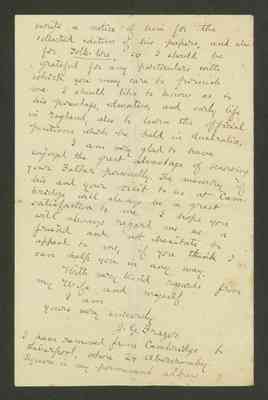 write a notice of him for the
collected edition of his papers, and also
for Folk-lore, so I should be
grateful for any particulars with
which you may care to furnish
me. I should like to know as to
his parentage, education, and early life
in England, also to learn the official
positions which he held in Australia.
I am very glad to have
enjoyed the great advantage of knowing
your Father personally. The memory of
his and your visit to us at Cam-
bridge will always be a great
satisfaction to me. I hope you
will always regard me as a
friend and not hesitate to
appeal to me, if you think I
can help you in any way.
With very kind regards from
my Wife and myself
I am
yours very sincerely
J. G. Frazer
I have removed from Cambridge to
Liverpool, where 24 Abercromby
Square is my permanent address